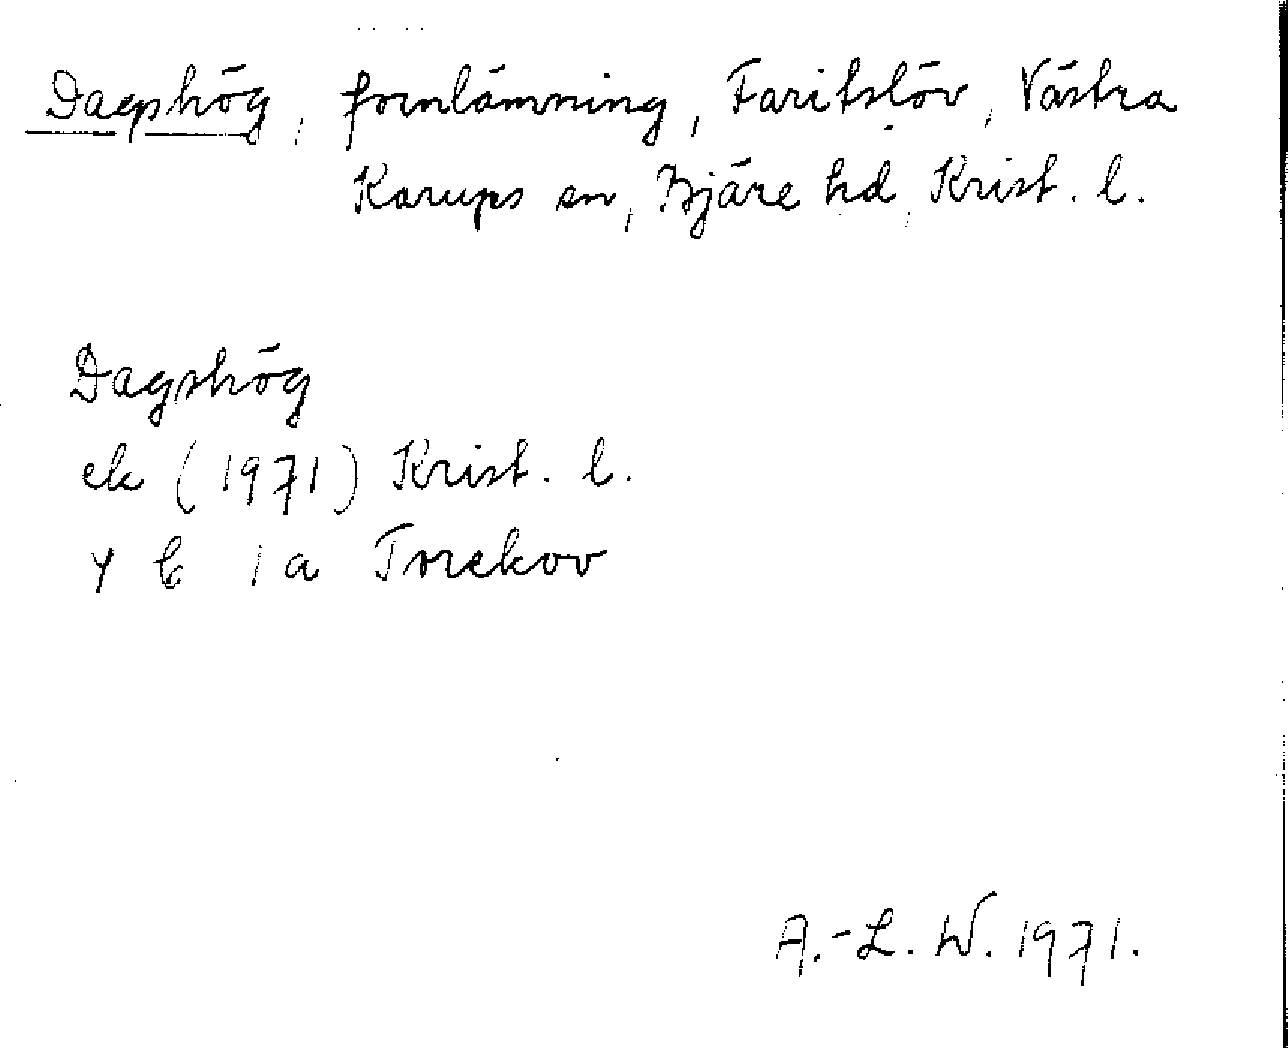 Dagshög, fornlämning, Faritslöv, Västra
Karups sn, Bjäre hd, Krist. l.
Dagshög
ek (1971) Krist. l.
y b 1a Torekov
A.-L. W. 1971.